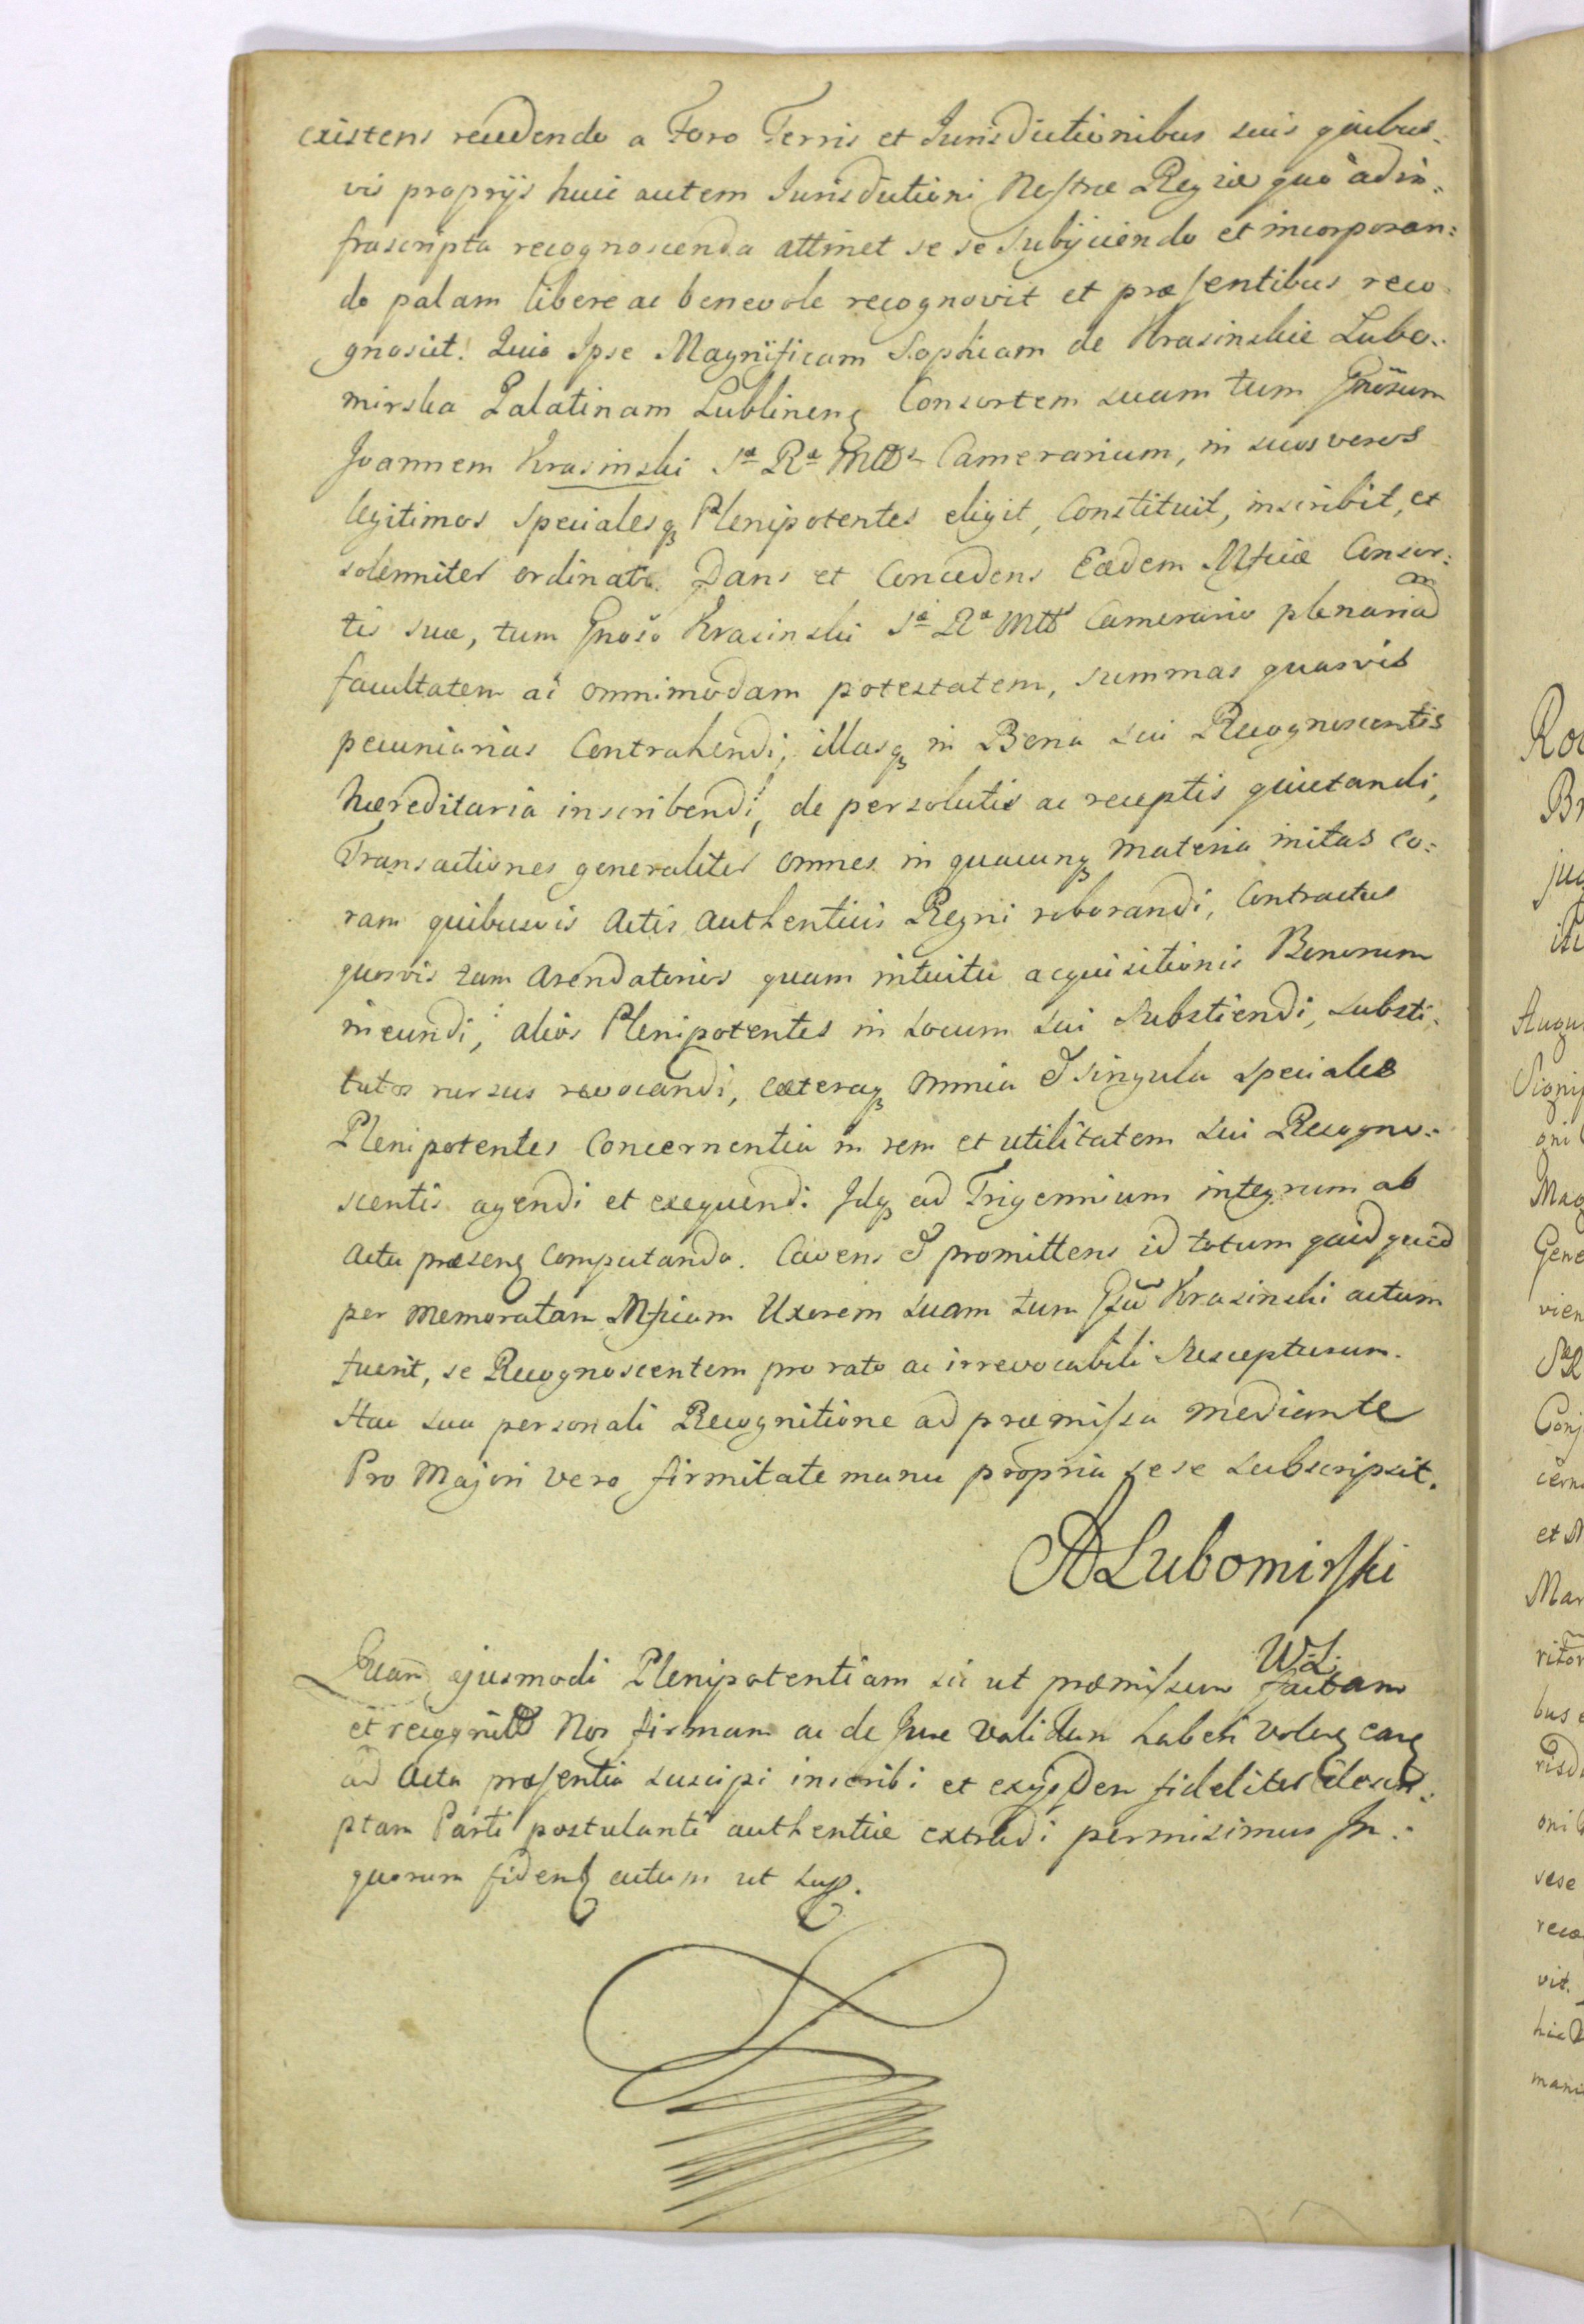 existens recedendo a Foro Terris et Jurisdictionibus suis quibus-
vis proprijs huic autem Jurisdictioni Nostræ Regiæ quo ad in=
frascripta recognoscenda attinet se se Subijciendo et incorporan=
do palam libere ac benevole recognovit et præsentibus reco
gnoscit. Quia Ipse Magnificam Sophiam de Krasinskie Lubo-
mirska Palatinam Lublinenq Consortem suam tum Gnosum
Joannem Krasinski Sæ Ræ Mttis Camerarium, in suos veros
legitimos Specialesq Plenipotentes eligit, Constituit, inscribit, et
solenniter ordinat. Dans et Concedens Eædem Mficæ Consor=
tis suæ, tum Gnoso Krasinski Sæ Ræ Mtt Camerario plenariam
facultatem ac omnimodam potestatem, summas quasvis
pecuniarias Contrahendi, illasq in Bona sui Recognoscentis
hæreditaria inscribendi, de persolutis ac receptis quietandi,
Transactiones generaliter omnes in quacunq materia initas co=
ram quibusvis Actis Authenticis Regni roborandi, Contractus
quosvis tam Arendatorios quam intuitu acquisitionis Bonorum
ineundi, alios Plenipotentes in Locum sui Substiendi, substi-
tutos rursus revocandi, cæteraq Omnia & singula Speciales
Plenipotentes Concernentia in rem et utilitatem sui Recogno=
scentis agendi et exequendi Idq ad Trigennium integrum ab
Actu præsenq Computando. Cavens & promittens id totum quidquid
per Memoratam Mficam Uxorem suam tum Gsū Krasinski actum
fuerit, se Recognoscentem pro rato ac irrevocabili Suscepturum.
Hac sua personali Recognitione ad præmissa mediante
Pro Majori vero firmitate manu propria sese subscripsit.
A Lubomirski
W.L.
Quam ejusmodi Plenipotentiam sic ut præmissum factam
et recognitā Nos firmam ac de Jure validam haberi volenq eamq
ad Acta præsentia suscipi inscribi et exijsdem fideliter descri-
ptam Parti postulanti authentice extradi permisimus In-
quorum fidem actum ut sup.